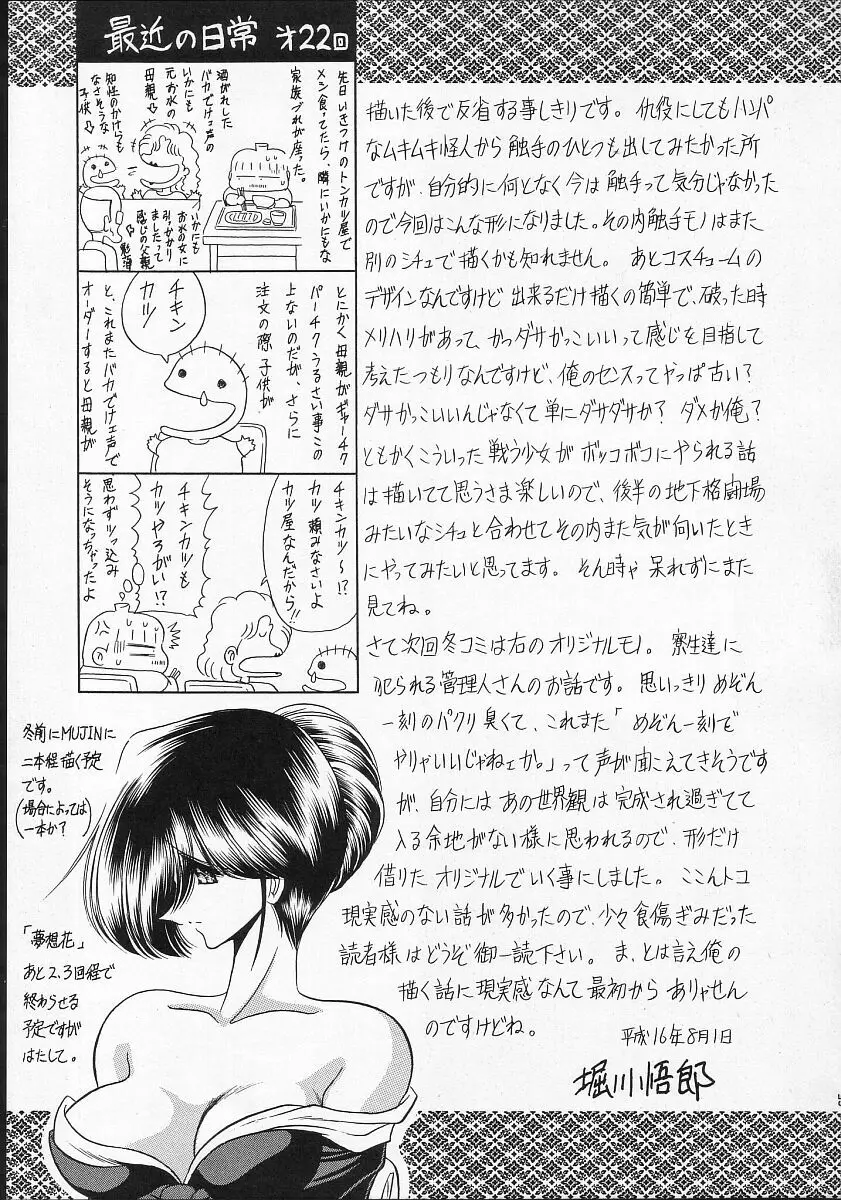 最近の日常 オ22回
先日いきつけのトンカツ屋で
メシ食ってたら、隣にいかにもな
家族ヅれが座った。
酒がれした
バカでけェ声の
いかにも
元お水の
母親↓
知性のかけらも
なさそうな
子供⇩
いかにも
お水の女に
引っかかり
ましたって
感じの父親
とにかく母親がギャーチク
パーチクうるさい事この
上ないのだが、さらに
注文の際、子供が
チキン
カツ
と、これまたバカでけェ声で
オーダーすると母親が
チキンカツ〜!?
カツ頼みなさいよ
カツ屋なんだから!!
チキンカツも
カツやろがい!?
思わずツッ込み
そうになっちゃったよ
描いた後で反省する事しきりです。仇役にしてもハンパ
なムキムキ怪人から触手のひとつも出してみたかった所
ですが、自分的に何となく今は触手って気分じゃなかった
ので今回はこんな形になりました。その内触手モノはまた
別のシチュで描くかも知れません。 あとコスチュームの
デザインなんですけど出来るだけ描くの簡単で、破った時
メリハリがあって、かつダサかっこいいって感じを目指して
考えたつもりなんですけど、俺のセンスってやっぱ古い?
ダサかっこいいんじゃなくて単にダサダサか? ダメか俺?
ともかくこういった戦う少女がボッコボコにやられる話
は描いてて思うさま楽しいので、後半の地下格闘場
みたいなシチュと合わせてその内また気が向いたとき
にやってみたいと思ってます。そん時ゃ呆れずにまた
見てね。
さて次回冬コミは右のオリジナルモノ。寮生達に
犯られる管理人さんのお話です。思いっきりめぞん
一刻のパクリ臭くて、これまた「めぞん一刻で
やりゃいいじゃねェか。」って声が聞こえてきそうです
が、自分にはあの世界観は完成され過ぎてて
入る余地がない様に思われるので、形だけ
借りたオリジナルでいく事にしました。ここんトコ
現実感のない話が多かったので、少々食傷ぎみだった
読者様はどうぞ御一読下さい。ま、とは言え俺の
描く話に現実感なんて最初からありゃせん
のですけどね。
平成16年8月1日
堀川悟郎
冬前にMUJINに
二本程描く予定
です。
(場合によっては
一本か?)
「夢想花」
あと2、3回程で
終わらせる
予定ですが
はたして。